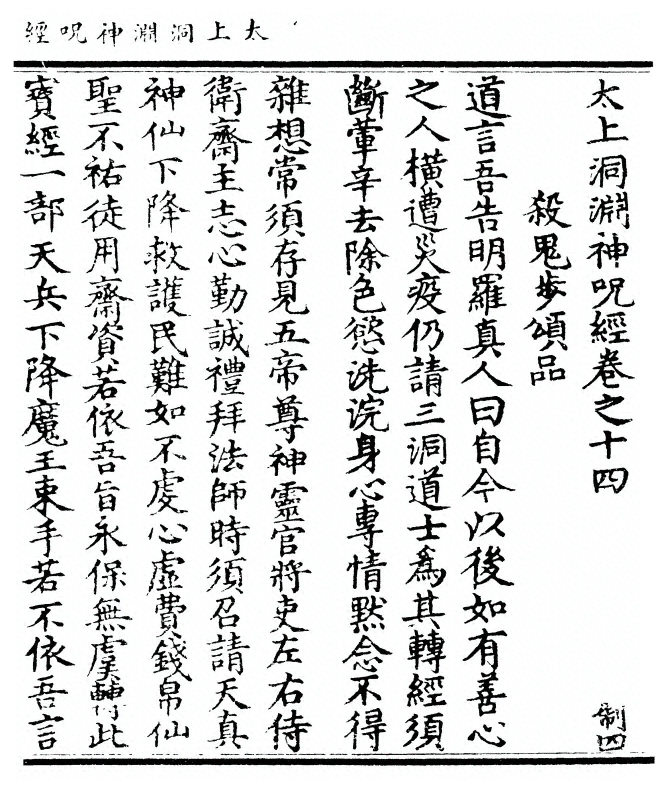 太上洞淵神呪經
太上洞淵神呪經卷之十四
制四
殺鬼步頌品
道言吾告明羅真人曰自今以後如有善心
之人橫遭災疫仍請三洞道士為其轉經須
斷葷辛去除色慾洗浣身心專情默念不得
雜想常須存見五帝尊神靈官將吏左右侍
衛齋主志心勤誠禮拜法師時須召請天真
神仙下降救護民難如不虔心虛費錢帛仙
聖不祐徒用齋資若依吾旨永保無虞轉此
寶經一部天兵下降魔王束手若不依吾言